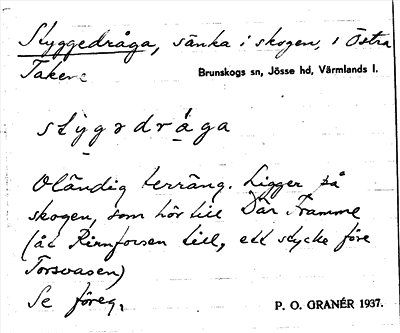 Styggedråga, sänka i skogen, i Östra
Takene
Brunskogs sn, Jösse hd, Värmlands l.
stýgədråga
Oländig terräng. Ligger på
skogen, som hör till Där Framme
(åt Rinnforsen till, ett stycke före
Torsvasen)
Se föreg.
P. O. GRANÉR 1937.